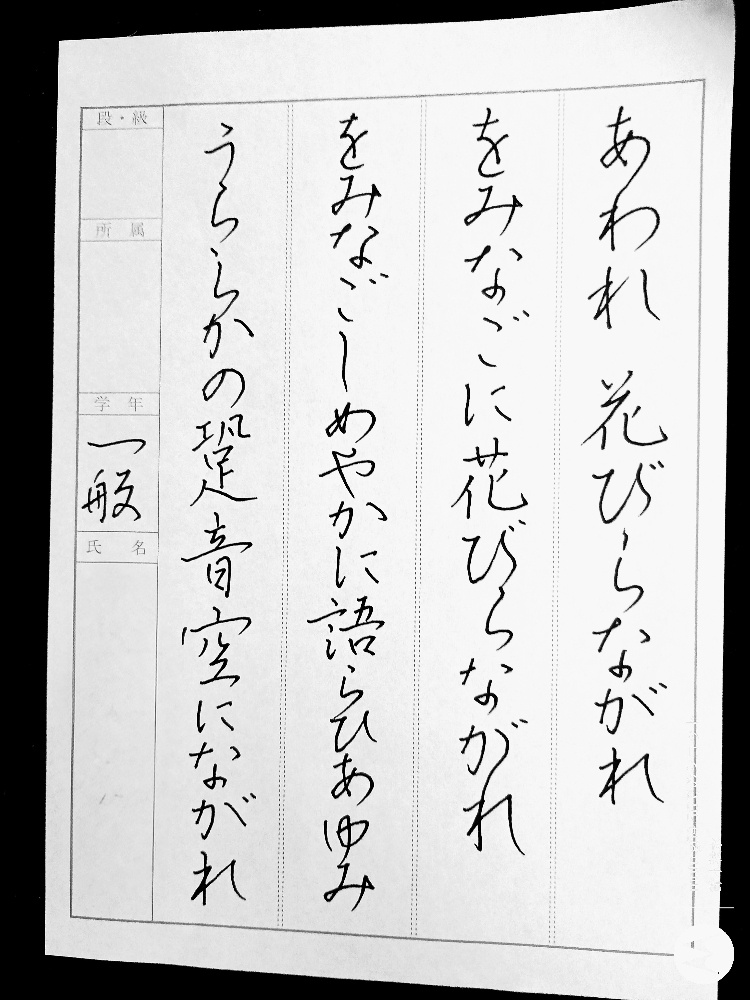 あわれ　花びらながれ
をみなごに花びらながれ
をみなごしめやかに語らひあゆみ
うららかの跫音空にながれ
段・級
所属
学年
一般
氏名